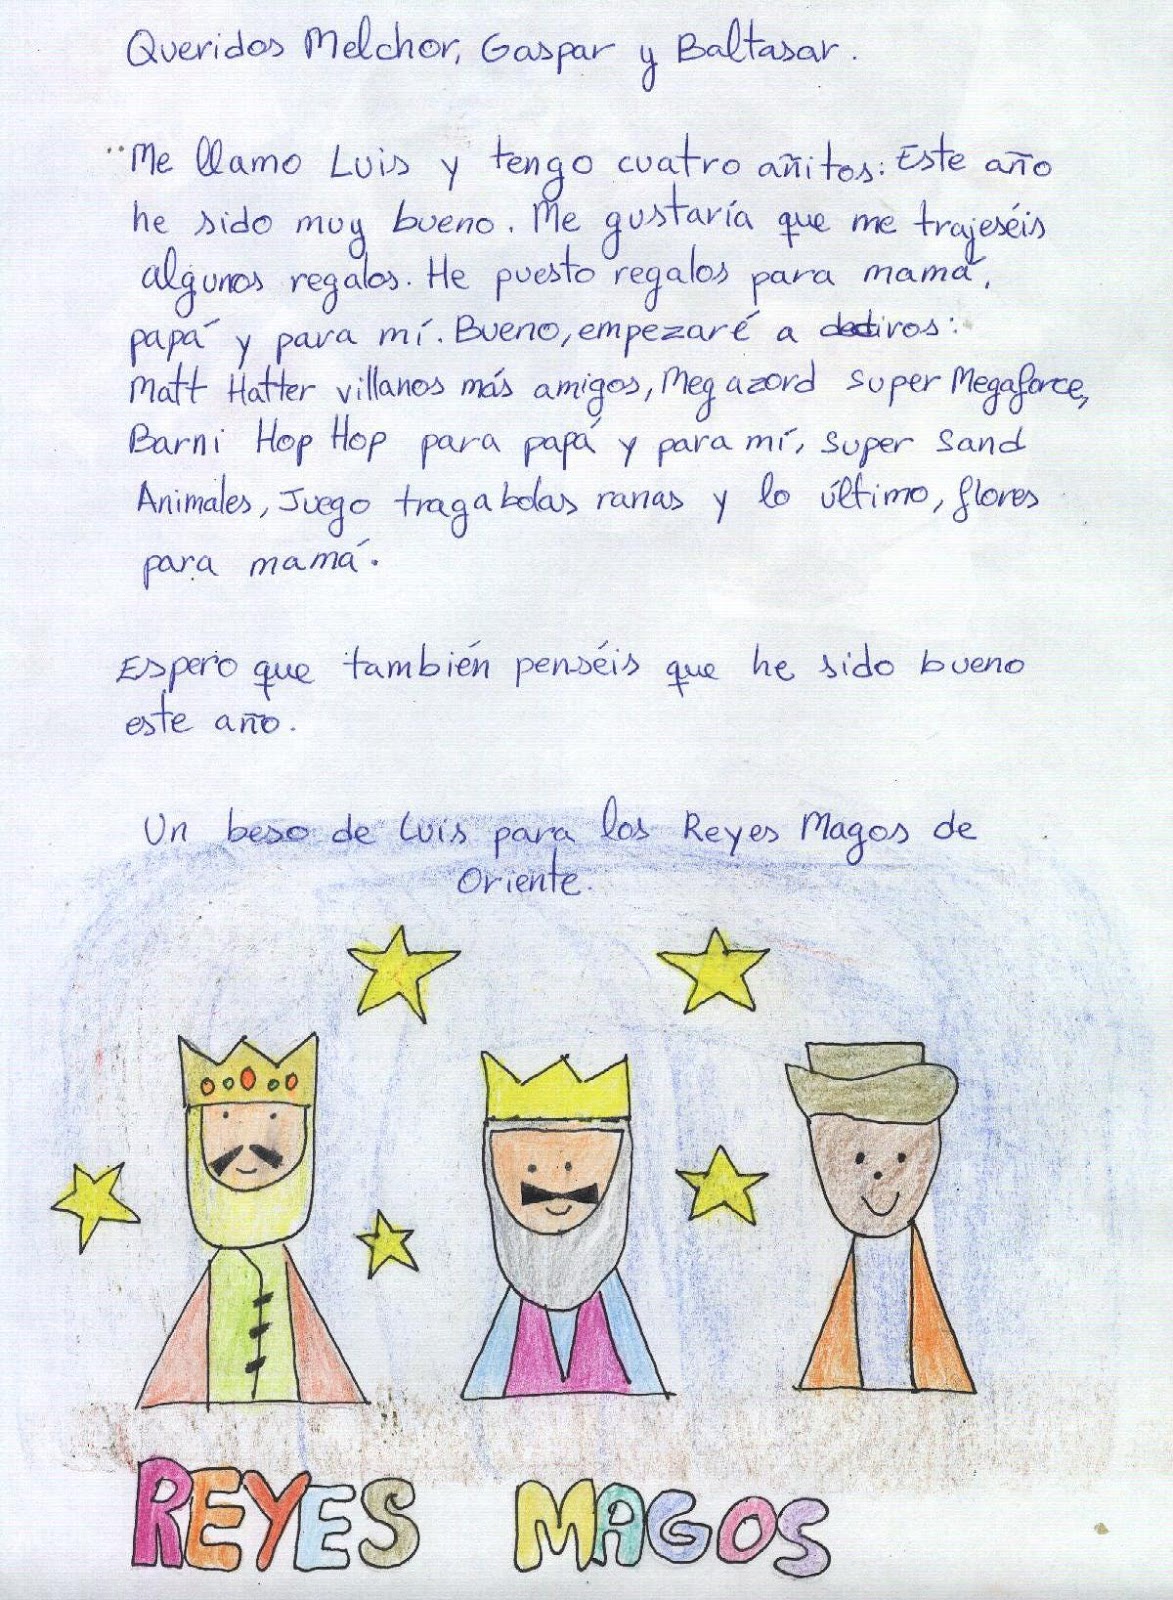 Queridos Melchor, Gaspar y Baltasar.
Me llamo Luis y tengo cuatro añitos. Este año
he sido muy bueno. Me gustaría que me trajeséis
algunos regalos. He puesto regalos para mamá,
papá y para mí. Bueno, empezaré a deciros:
Matt Hatter villanos más amigos, Megazord Super Megaforce,
Barni Hop Hop para papá y para mí, Super Sand
Animales, Juego tragabolas ranas y lo último, flores
para mamá.
Espero que también penséis que he sido bueno
este año.
Un beso de Luis para los Reyes Magos de
Oriente.
REYES MAGOS